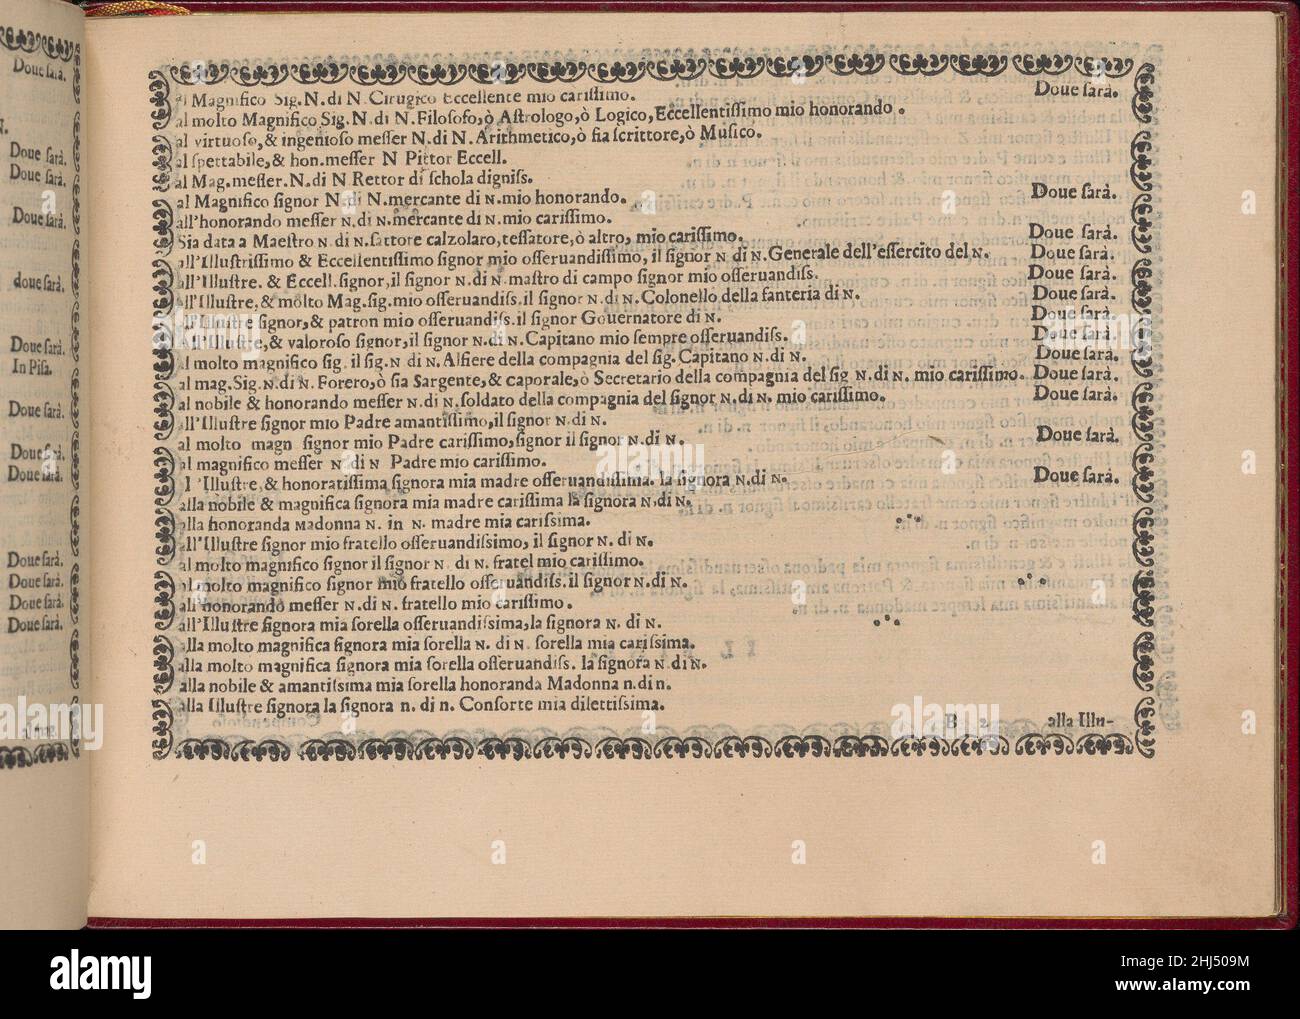 Doue sarà.
Doue sarà.
Doue sarà.
Doue sarà.
doue sarà.
Doue sarà.
In Pisa.
Doue sarà.
Doue sarà.
Doue sarà.
Doue sarà.
Doue sarà.
Doue sarà.
Doue sarà.
al Magnifico Sig. N. di N. Cirugico Eccellente mio carissimo. Doue sarà.
al molto Magnifico Sig. N. di N. Filosofo, ò Astrologo, ò Logico, Eccellentissimo mio honorando.
al virtuoso, & ingenioso messer N. di N. Arithmetico, ò sia scrittore, ò Musico.
al spettabile, & hon. messer N Pittor Eccell.
al Mag. messer. N. di N Rettor di schola digniss.
al Magnifico signor N. di N. mercante di N. mio honorando. Doue sarà.
all'honorando messer N. di N. mercante di N. mio carissimo.
Sia data a Maestro N di N. fattore calzolaro, tessatore, ò altro, mio carissimo. Doue sarà.
all'Illustrissimo & Eccellentissimo signor mio osseruandissimo, il signor N di N. Generale dell'essercito del N. Doue sarà.
all'Illustre. & Eccell. signor, il signor N. di N. mastro di campo signor mio osseruandiss. Doue sarà.
all'Illustre, & molto Mag. sig. mio osseruandiss. il signor N. di N. Colonello della fanteria di N. Doue sarà.
ll'Illustre signor, & patron mio osseruandiss. il signor Gouernatore di N. Doue sarà.
All'Illustre, & valoroso signor, il signor N. di N. Capitano mio sempre osseruandiss. Doue sarà.
al molto magnifico sig. il sig. N di N. Alfiere della compagnia del sig. Capitano N. di N. Doue sarà.
al mag. Sig. N. di N. Forero, ò sia Sargente, & caporale, ò Secretario della compagnia del sig N. di N. mio carissimo. Doue sarà.
al nobile & honorando messer N. di N. soldato della compagnia del signor N. di N. mio carissimo. Doue sarà.
all'Illustre signor mio Padre amantissimo, il signor N. di N.
al molto magn signor mio Padre carissimo, signor il signor N. di N. Doue sarà.
al magnifico messer N di N Padre mio carissimo.
l'Illustre, & honoratissima signora mia madre osseruandissima. la signora N. di N. Doue sarà.
alla nobile & magnifica signora mia madre carissima la signora N. di N.
alla honoranda Madonna N. in N. madre mia carissima.
all'Illustre signor mio fratello osseruandissimo, il signor N. di N.
al molto magnifico signor il signor N. di N. fratel mio carissimo.
al molto magnifico signor mio fratello osseruandiss. il signor N. di N.
all'honorando messer N. di N. fratello mio carissimo.
all'Illustre signora mia sorella osseruandissima, la signora N. di N.
alla molto magnifica signora mia sorella N. di N. sorella mia carissima.
alla molto magnifica signora mia sorella osseruandiss. la signora N di N.
alla nobile & amantissima mia sorella honoranda Madonna n. di n.
alla Illustre signora la signora n. di n. Consorte mia dilettissima.
B 2 alla Illu-
alamy
Image ID: 2HJ509M
www.alamy.com